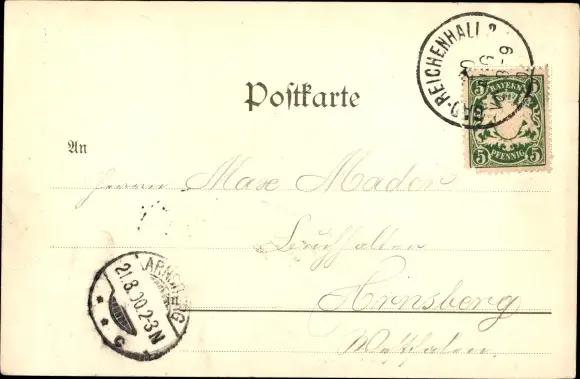 BAD-REICHENHALL 2
BAYERN
5 5
PFENNIG
Postkarte
An
Herrn Max Mader
Arnsberg
Westfalen
ARNSBERG
21.8.00.2-3N